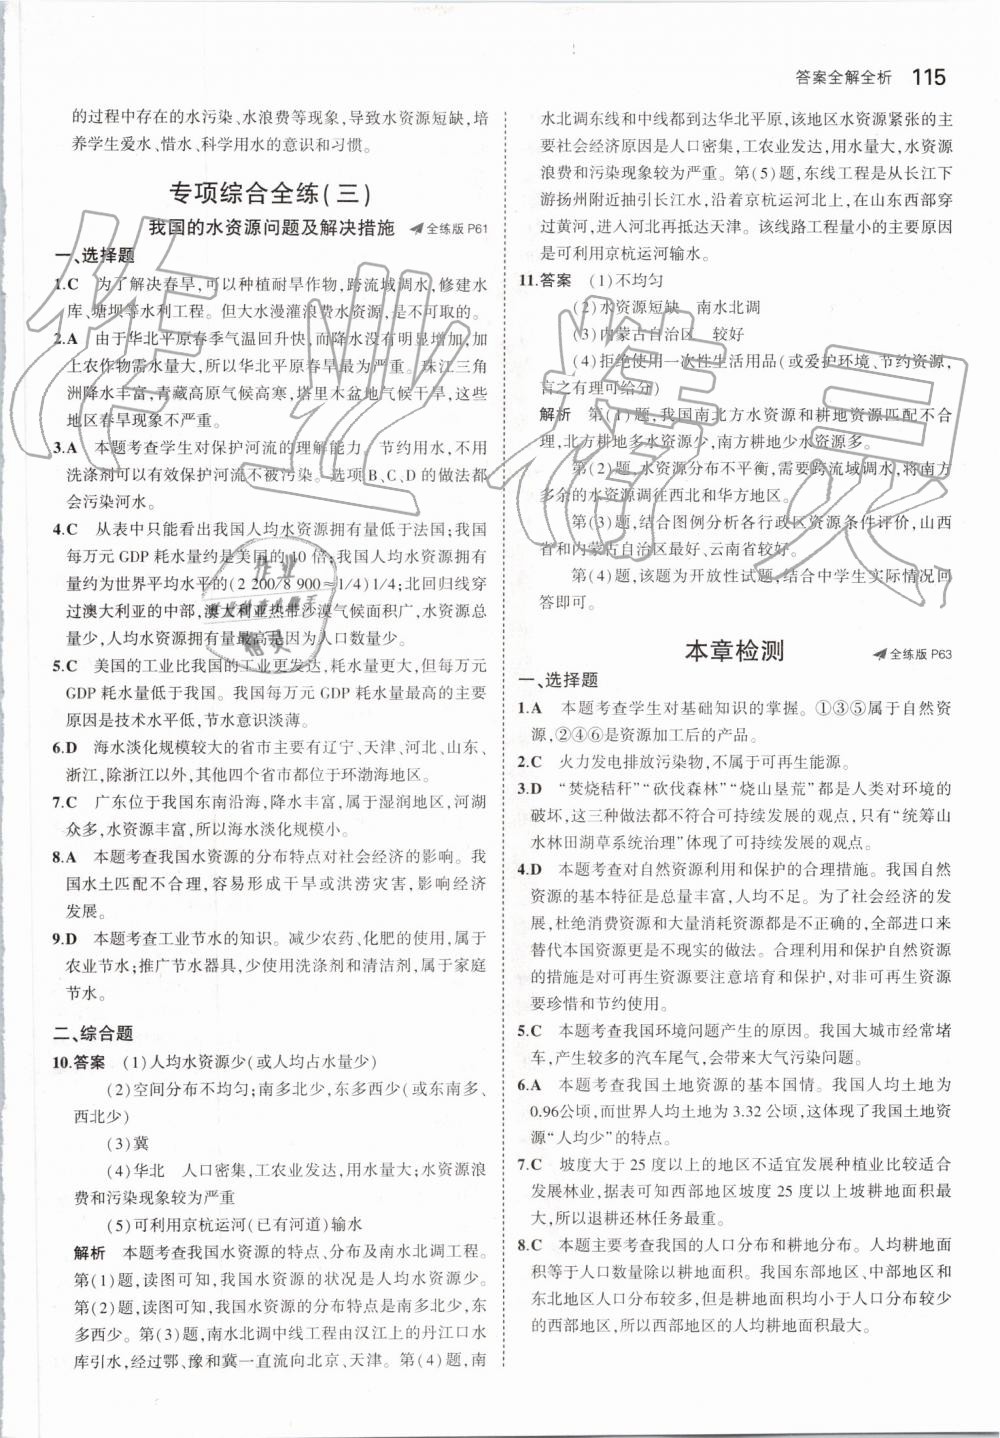 答案全解全析 115
的过程中存在的水污染、水浪费等现象,导致水资源短缺,培
养学生爱水、惜水、科学用水的意识和习惯。
专项综合全练(三)
我国的水资源问题及解决措施 全练版 P61
一、选择题
1.C 为了解决春旱,可以种植耐旱作物,跨流域调水,修建水
库、塘坝等水利工程。但大水漫灌浪费水资源,是不可取的。
2.A 由于华北平原春季气温回升快,而降水没有明显增加,加
上农作物需水量大,所以华北平原春旱最为严重。珠江三角
洲降水丰富,青藏高原气候高寒,塔里木盆地气候干旱,这些
地区春旱现象不严重。
3.A 本题考查学生对保护河流的理解能力。节约用水,不用
洗涤剂可以有效保护河流不被污染。选项 B、C、D 的做法都
会污染河水。
4.C 从表中只能看出我国人均水资源拥有量低于法国;我国
每万元 GDP 耗水量约是美国的 10 倍;我国人均水资源拥有
量约为世界平均水平的(2 200/8 900≈1/4)1/4;北回归线穿
过澳大利亚的中部,澳大利亚热带沙漠气候面积广,水资源总
量少,人均水资源拥有量最高是因为人口数量少。
5.C 美国的工业比我国的工业更发达,耗水量大,但每万元
GDP 耗水量低于我国。我国每万元 GDP 耗水量最高的主要
原因是技术水平低,节水意识淡薄。
6.D 海水淡化规模较大的省市主要有辽宁、天津、河北、山东、
浙江,除浙江以外,其他四个省市都位于环渤海地区。
7.C 广东位于我国东南沿海,降水丰富,属于湿润地区,河湖
众多,水资源丰富,所以海水淡化规模小。
8.A 本题考查我国水资源的分布特点对社会经济的影响。我
国水土匹配不合理,容易形成干旱或洪涝灾害,影响经济
发展。
9.D 本题考查工业节水的知识。减少农药、化肥的使用,属于
农业节水;推广节水器具,少使用洗涤剂和清洁剂,属于家庭
节水。
二、综合题
10.答案 (1)人均水资源少(或人均占水量少)
(2)空间分布不均匀;南多北少,东多西少(或东南多、
西北少)
(3)冀
(4)华北 人口密集,工农业发达,用水量大;水资源浪
费和污染现象较为严重
(5)可利用京杭运河(已有河道)输水
解析 本题考查我国水资源的特点、分布及南水北调工程。
第(1)题,读图可知,我国水资源的状况是人均水资源少。
第(2)题,读图可知,我国水资源的分布特点是南多北少,东
多西少。第(3)题,南水北调中线工程由汉江上的丹江口水
库引水,经过鄂、豫和冀一直流向北京、天津。第(4)题,南
水北调东线和中线都到达华北平原,该地区水资源紧张的主
要社会经济原因是人口密集,工农业发达,用水量大,水资源
浪费和污染现象较为严重。第(5)题,东线工程是从长江下
游扬州附近抽引长江水,沿着京杭运河北上,在山东西部穿
过黄河,进入河北再抵达天津。该线路工程量小的主要原因
是可利用京杭运河输水。
11.答案 (1)不均匀
(2)水资源短缺 南水北调
(3)内蒙古自治区 较好
(4)拒绝使用一次性生活用品(或爱护环境、节约资源,
言之有理可给分)
解析 第(1)题,我国南北方水资源和耕地资源匹配不合
理,北方耕地多水资源少,南方耕地少水资源多。
第(2)题,水资源分布不平衡,需要跨流域调水,将南方
多余的水资源调往西北和华方地区。
第(3)题,结合图例分析各行政区资源条件评价,山西
省和内蒙古自治区最好、云南省较好。
第(4)题,该题为开放性试题,结合中学生实际情况回
答即可。
本章检测 全练版 P63
一、选择题
1.A 本题考查学生对基础知识的掌握。①③⑤属于自然资
源,②④⑥是资源加工后的产品。
2.C 火力发电排放污染物,不属于可再生能源。
3.D “焚烧秸秆”“砍伐森林”“烧山垦荒”都是人类对环境的
破坏,这三种做法都不符合可持续发展的观点,只有“统筹山
水林田湖草系统治理”体现了可持续发展的观点。
4.D 本题考查对自然资源利用和保护的合理措施。我国自然
资源的基本特征是总量丰富,人均不足。为了社会经济的发
展,杜绝消费资源和大量消耗资源都是不正确的,全部进口来
替代本国资源更是不现实的做法。合理利用和保护自然资源
的措施是对可再生资源要注意培育和保护,对非可再生资源
要珍惜和节约使用。
5.C 本题考查我国环境问题产生的原因。我国大城市经常堵
车,产生较多的汽车尾气,会带来大气污染问题。
6.A 本题考查我国土地资源的基本国情。我国人均土地为
0.96公顷,而世界人均土地为 3.32 公顷,这体现了我国土地资
源“人均少”的特点。
7.C 坡度大于 25 度以上的地区不适宜发展种植业比较适合
发展林业,据表可知西部地区坡度 25 度以上坡耕地面积最
大,所以退耕还林任务最重。
8.C 本题主要考查我国的人口分布和耕地分布。人均耕地面
积等于人口数量除以耕地面积。我国东部地区、中部地区和
东北地区人口分布较多,但是耕地面积均小于人口分布较少
的西部地区,所以西部地区的人均耕地面积最大。
作业精灵
作业
精灵